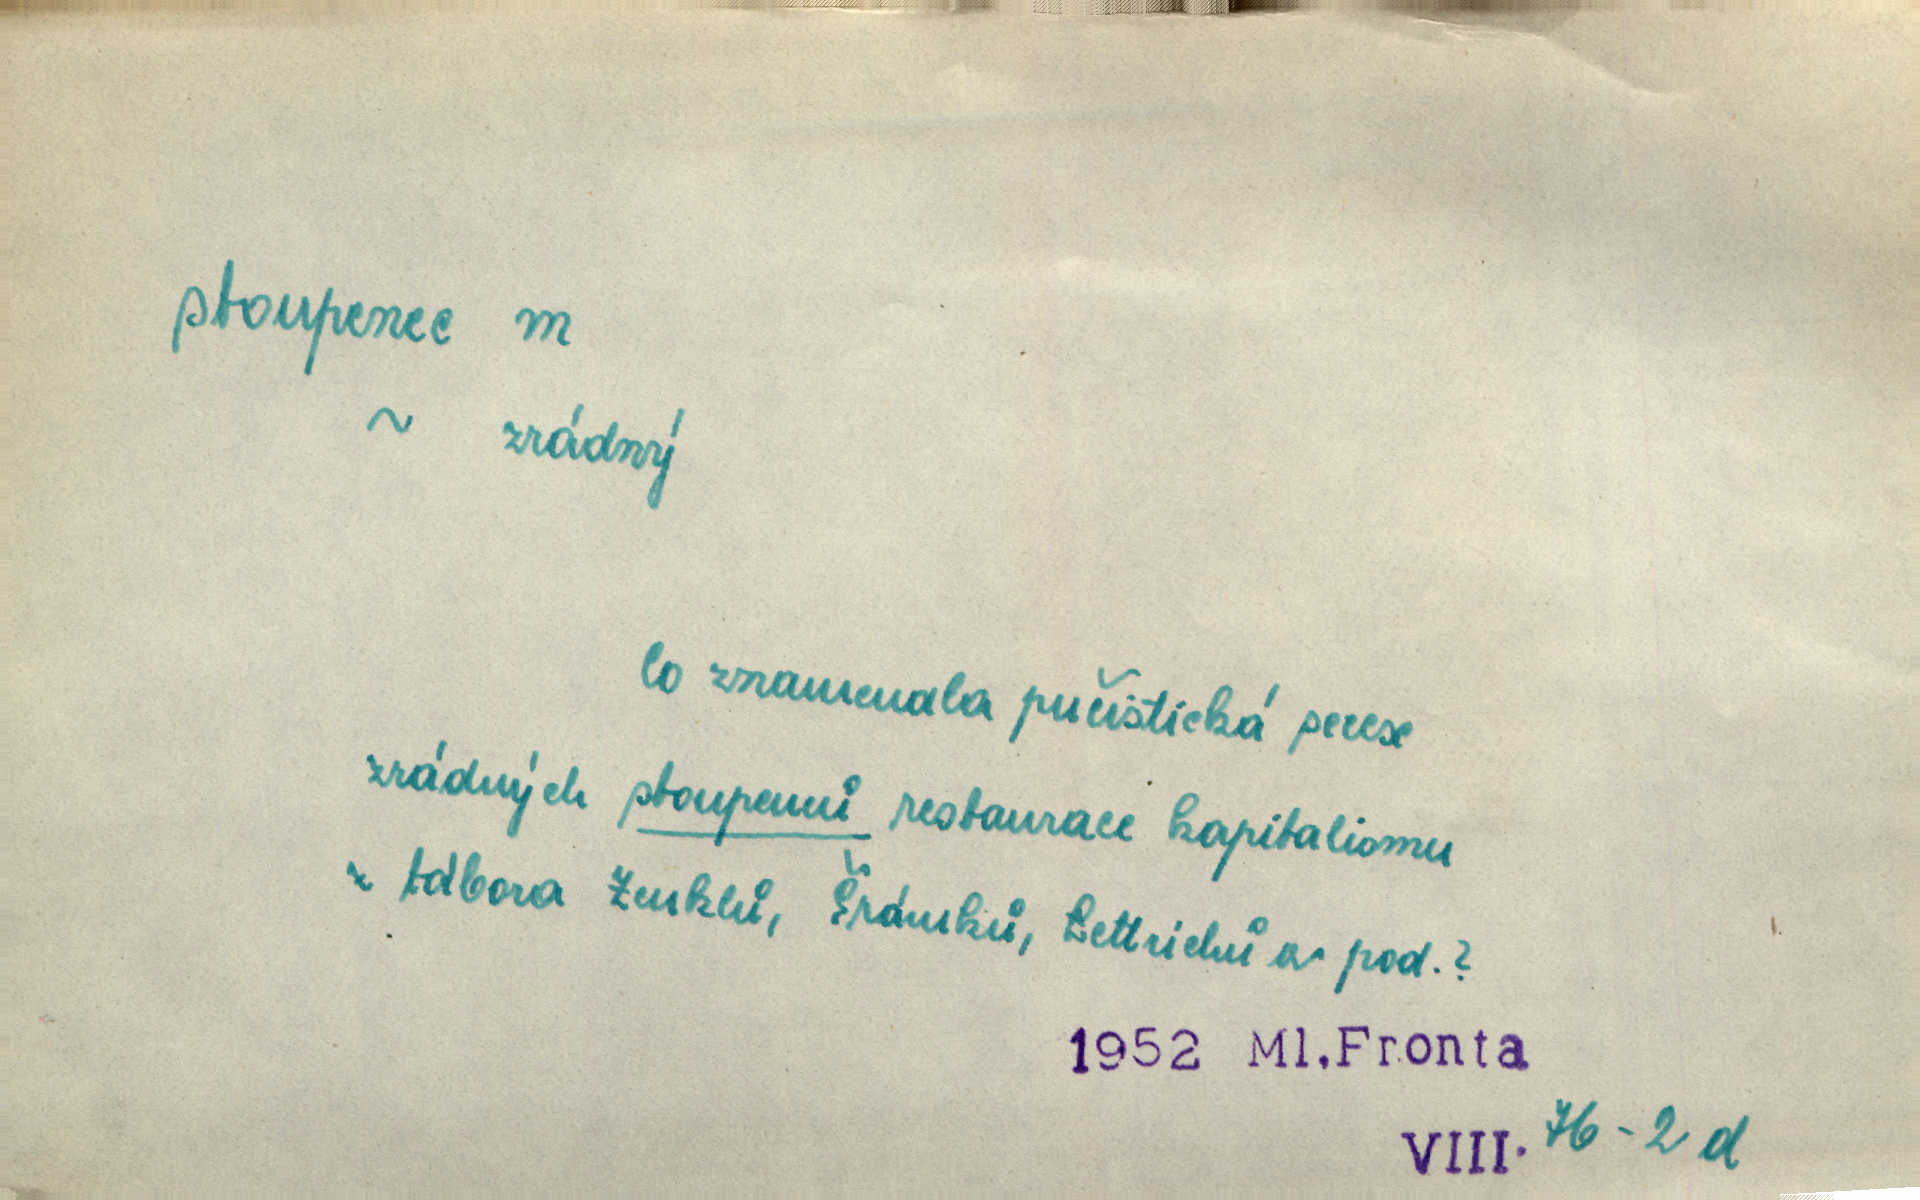 stoupenec m
~ zrádný
Co znamenala pučistická
zrádných stoupenců restaurace kapitalismu
z tábora Zenklů, Šrámků, Lettrichů a pod.?
1952 Ml.Fronta
VIII. 76-2d